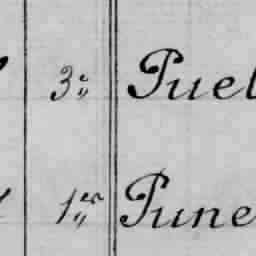 3:; Puel
1er Pune